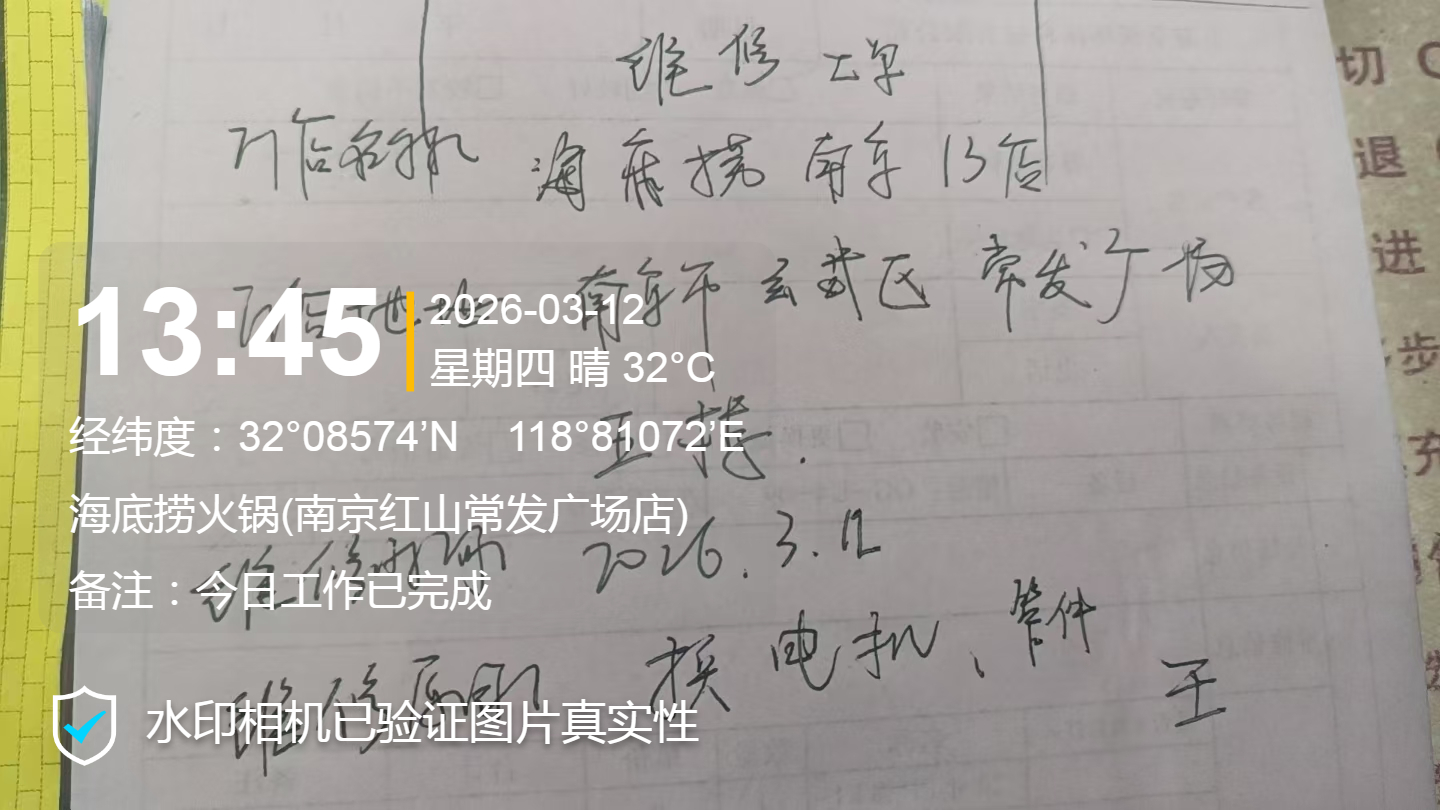 维修工单
门店名称 海底捞 南京13店
门店地址 南京市玄武区 常发广场
13:45
2026-03-12
星期四 晴 32°C
经纬度：32°08574’N 118°81072’E
海底捞火锅(南京红山常发广场店)
维修时间 2026.3.12
备注：今日工作已完成
维修 换电机、管件
水印相机已验证图片真实性
切
退
进
步
充